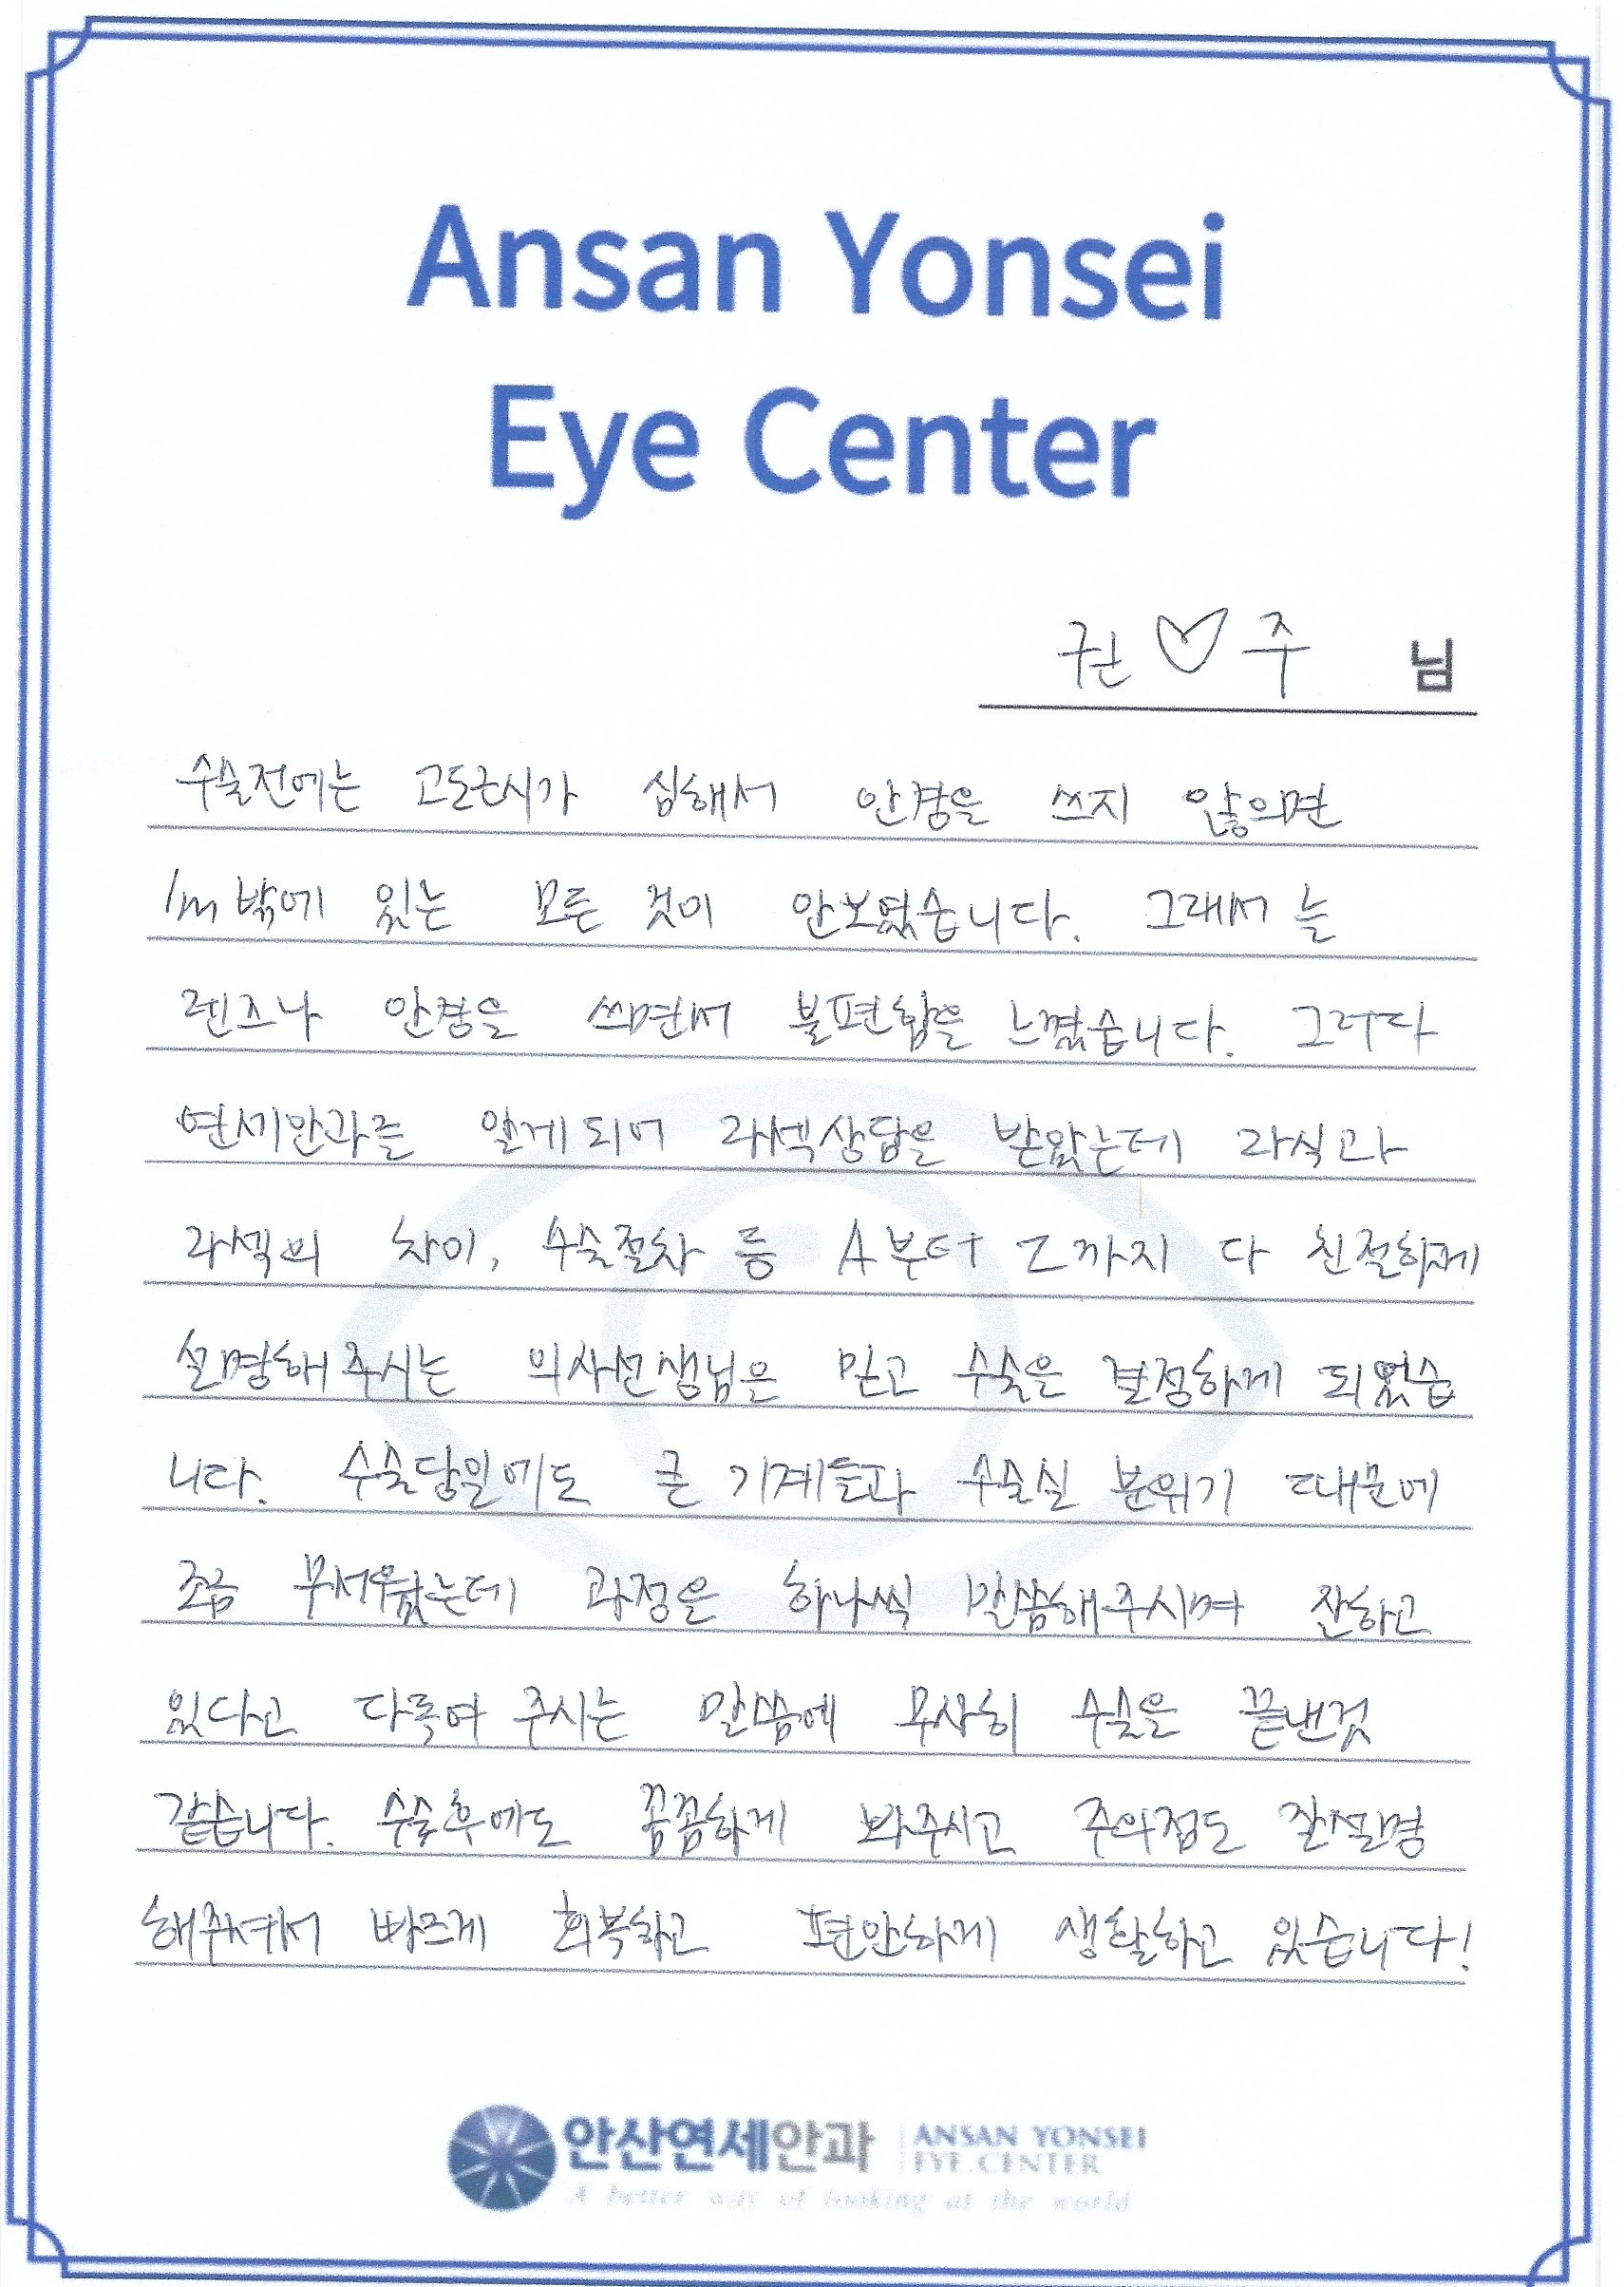 Ansan Yonsei
Eye Center
권♡주 님
수술전에는 고도근시가 심해서 안경을 쓰지 않으면
1m밖에 있는 모든 것이 안보였습니다. 그래서 늘
렌즈나 안경을 쓰면서 불편함을 느꼈습니다. 그러다
연세안과를 알게되어 라섹상담을 받았는데 라식과
라섹의 차이, 수술절차 등 A부터 Z까지 다 친절하게
설명해주시는 의사선생님을 믿고 수술을 결정하게 되었습
니다. 수술당일에도 큰 기계들과 수술실 분위기 때문에
조금 무서웠는데 과정을 하나씩 말씀해주시며 잘하고
있다고 다독여 주시는 말씀에 무사히 수술을 끝낸것
같습니다. 수술후에도 꼼꼼하게 봐주시고 주의점도 잘설명
해주셔서 빠르게 회복하고 편안하게 생활하고 있습니다!
안산연세안과 ANSAN YONSEI
EYE CENTER
A better way of looking at the world